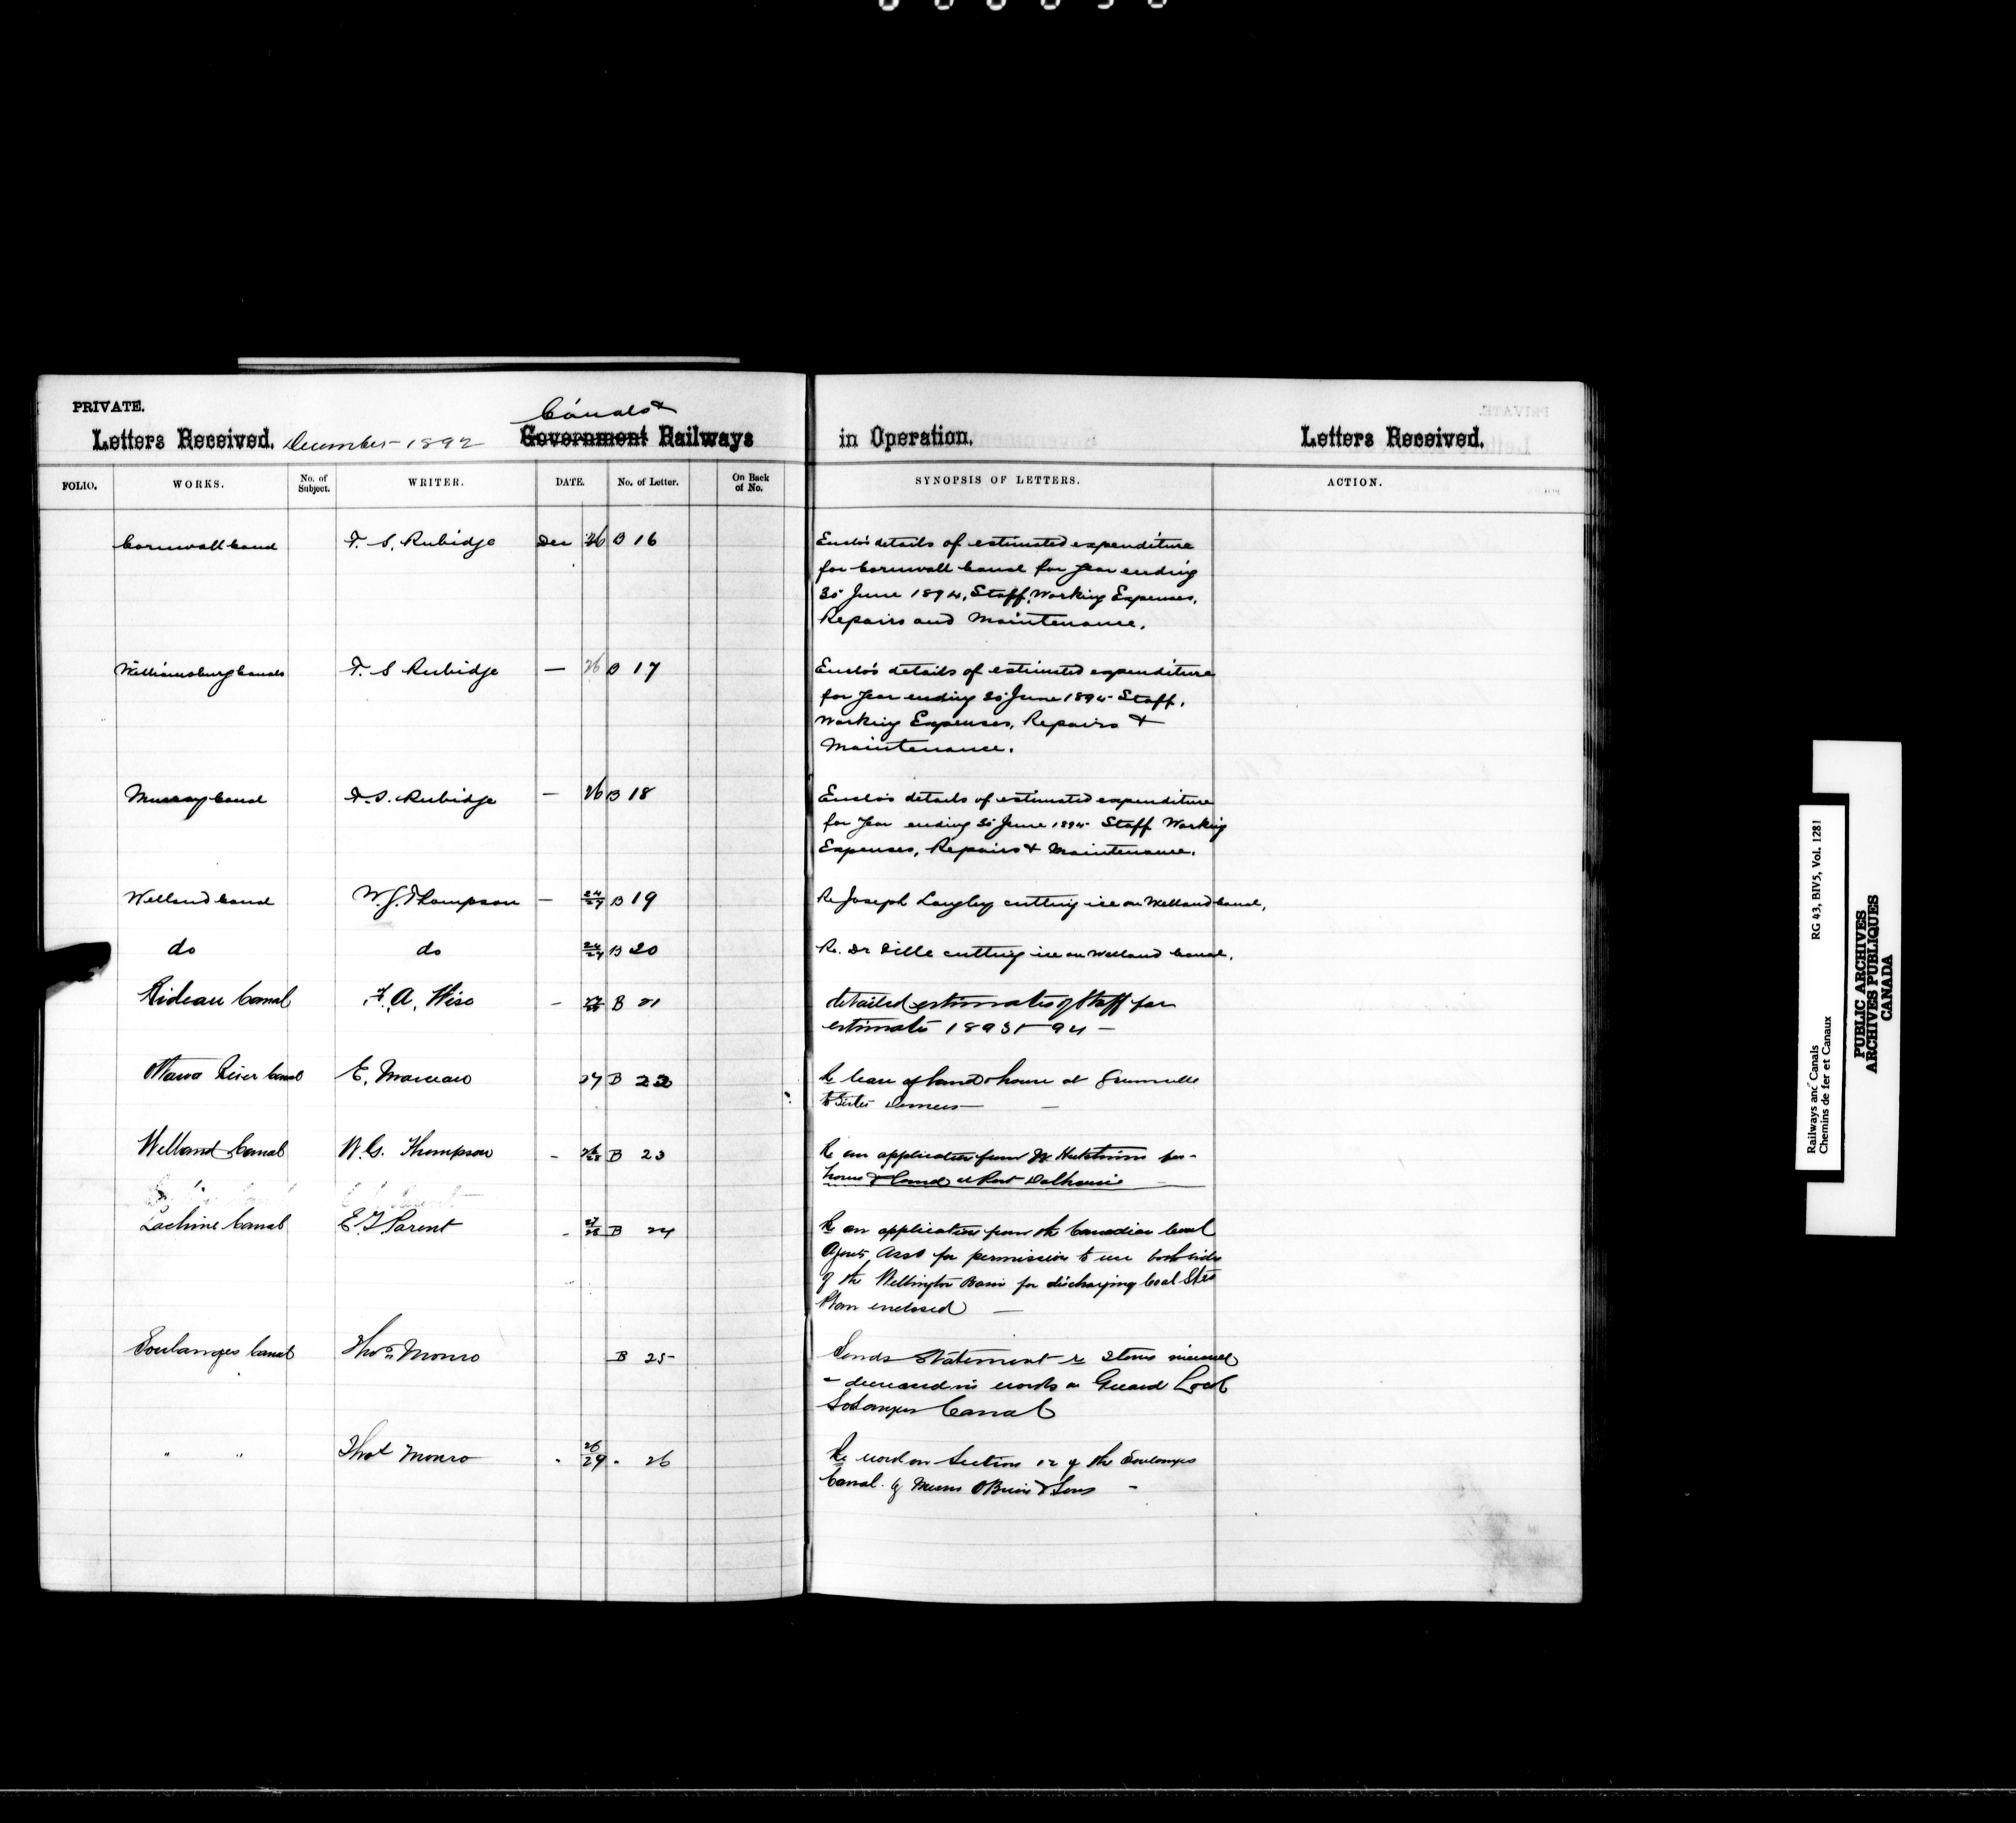 PRIVATE.
Letters Received. December 1892 Canals & Government Railways in Operation. Letters Received.
FOLIO. WORKS. No. of Subject. WRITER. DATE. No. of Letter. On Back of No. SYNOPSIS OF LETTERS. ACTION.
Cornwall Canal T. S. Rubidge Dec 26 B 16 Enclo's details of estimated expenditure
for Cornwall Canal for year ending
30 June 1894, Staff, Working Expenses,
Repairs and Maintenance.
Williamsburg Canals T. S Rubidge — 26 B 17 Enclo's details of estimated expenditure
for year ending 30 June 1894 Staff,
Working Expenses, Repairs &
Maintenance.
Murray Canal T. S. Rubidge — 26 B 18 Enclo's details of estimated expenditure
for year ending 30 June 1894 Staff Working
Expenses, Repairs & Maintenance.
Welland Canal W. G. Thompson — 24/27 B 19 Re Joseph Langley cutting ice on Welland Canal,
do do 24/27 B 20 Re. Dr cutting ice on Welland Canal.
Rideau Canal F. A. Wise - B 21 detailed estimates of Staff for
estimate 1893-94 -
Ottawa River Canal E. Marceau 27 B 22 Re lease of land & house at Grenville
to
Welland Canal W. G. Thompson - B 23 Re an application from for
house & land at Port Dalhousie
Lachine Canal E. Parent - 27/28 B 24 Re an application from the Canadian
Asso for permission to use both sides
of the Wellington Basin for discharging Coal
Plan enclosed —
Soulanges Canal Thos. Monro B 25 Sends Statement re items
decreased in works on Guard Lock
Canal
" " Thos Monro - 26/29 " 26 Re work on Section 12 of the Soulanges
Canal by Messrs O'Brien & Sons -
Railways and Canals
Chemins de fer et Canaux
RG 43, BIV5, Vol. 1281
PUBLIC ARCHIVES
ARCHIVES PUBLIQUES
CANADA